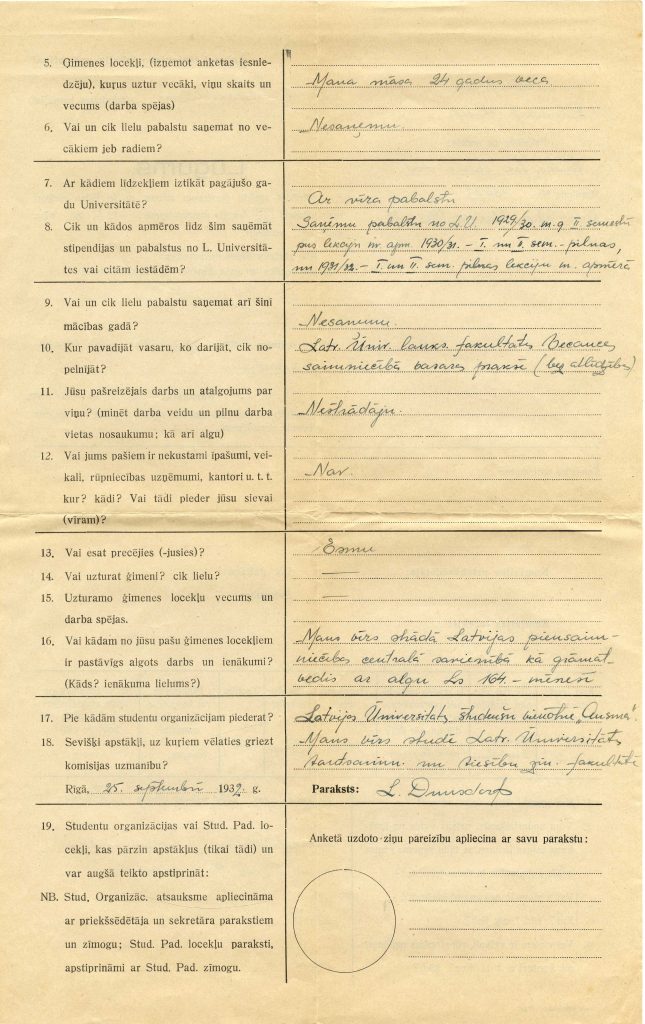 5. Ģimenes locekļi, (izņemot anketas iesnie-
dzēju), kuŗus uztur vecāki, viņu skaits un
vecums (darba spējas)
Mana māsa 24 gadus veca
6. Vai un cik lielu pabalstu saņemat no ve-
cākiem jeb radiem?
Nesaņemu.
7. Ar kādiem līdzekļiem iztikāt pagājušo ga-
du Universitātē?
Ar vīra pabalstu
8. Cik un kādos apmēros līdz šim saņēmāt
stipendijas un pabalstus no L. Universitā-
tes vai citām iestādēm?
Saņēmu pabalstu no L.U. 1929/30. m.g. II semestrī
pus lekciju n. apm. 1930/31. – I. un II. sem. – pilnas,
un 1931/32. – I un II. sem. pilnas lekciju n. apmērā
9. Vai un cik lielu pabalstu saņemat arī šinī
mācības gadā?
Nesaņemu.
10. Kur pavadījāt vasaru, ko darījāt, cik no-
pelnījāt?
Latv. Ūniv. lauks. fakultātes Vecauces
saimniecībā vasaras praksē (bez atlīdzības)
11. Jūsu pašreizējais darbs un atalgojums par
viņu? (minēt darba veidu un pilnu darba
vietas nosaukumu; kā arī algu)
Nestrādāju.
12. Vai jums pašiem ir nekustami īpašumi, vei-
kali, rūpniecības uzņēmumi, kantori u. t. t.
kur? kādi? Vai tādi pieder jūsu sievai
(vīram)?
Nav.
13. Vai esat precējies (-jusies)?
Esmu
14. Vai uzturat ģimeni? cik lielu?
—
15. Uzturamo ģimenes locekļu vecums un
darba spējas.
—
16. Vai kādam no jūsu pašu ģimenes locekļiem
ir pastāvīgs algots darbs un ienākumi?
(Kāds? ienākuma lielums?)
Mans vīrs strādā Latvijas piensaim-
niecības centralā savienībā kā grāmat-
vedis ar algu Ls 164.– mēnesī
17. Pie kādām studentu organizācijam piederat?
Latvijas Ūniversitātes studenšu vienotnē „Ausma".
18. Sevišķi apstākļi, uz kuŗiem vēlaties griezt
komisijas uzmanību?
Mans vīrs studē Latv. Ūniversitātes
tautsaimn. un tiesību zin. fakultātē
Rīgā, 25. septembrī 1932. g.
Paraksts: L. Dunsdorfs
19. Studentu organizācijas vai Stud. Pad. lo-
cekļi, kas pārzin apstākļus (tikai tādi) un
var augšā teikto apstiprināt:
NB. Stud. Organizāc. atsauksme apliecināma
ar priekšsēdētāja un sekretāra parakstiem
un zīmogu; Stud. Pad. locekļu paraksti,
apstiprināmi ar Stud. Pad. zīmogu.
Anketā uzdoto ziņu pareizību apliecina ar savu parakstu: